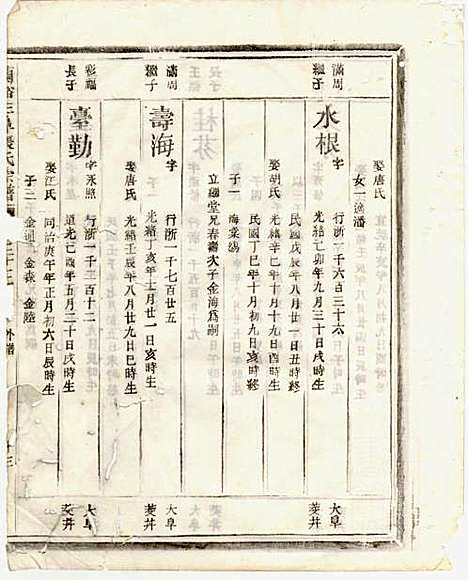 娶唐氏
女一適潘
滿周
繼子
水根
字
行所一千六百三十六
光緒己卯年九月三十日戌時生
民國戊辰年八月廿一日丑時終
娶胡氏
光緒辛巳年十月十九日酉時生
民國丁巳年十月初九日亥時終
子一
海棠殤
立繼堂兄春壽次子金海為嗣
大阜
菱井
滿周
繼子
壽海
字
行所一千七百廿五
光緒丁亥年十一月廿一日亥時生
娶氏
光緒壬辰年八月廿九日巳時生
大阜
菱井
彩福
長子
臺勤
字永照
行所一千三百十二
道光己酉年五月二十日戌時生
娶江氏
同治庚午年正月初六日辰時生
子三
金通
金森
金陸
大阜
菱井
氏宗譜
外譜